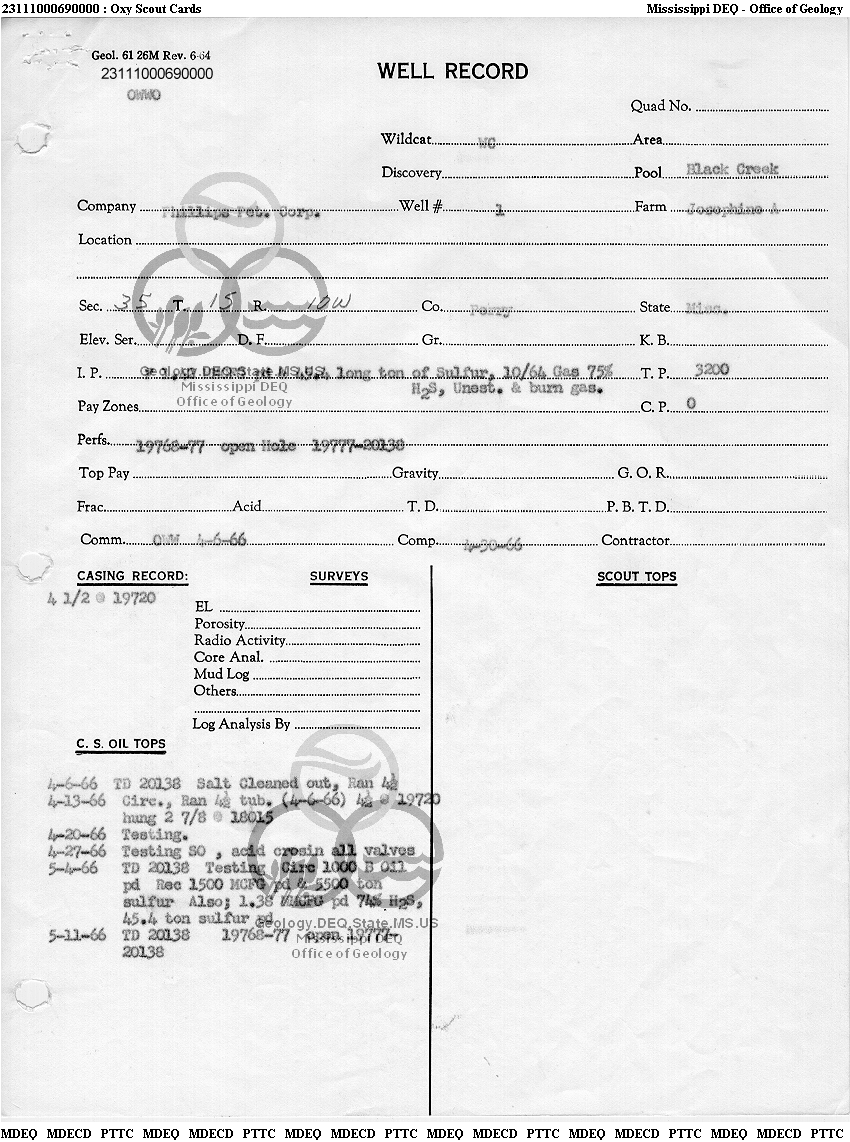 23111000690000 : Oxy Scout Cards Mississippi DEQ - Office of Geology
Geol. 61 26M Rev. 6-64
23111000690000
WELL RECORD
OWWO
Quad No.
Wildcat WC Area
Discovery Pool Black Creek
Company Phillips Pet. Corp. Well # 1 Farm Josephine A
Location
Sec. 35 T. 1S R. 10W Co. Perry State Miss.
Elev. Ser. D. F. Gr. K. B.
I. P. long ton of Sulfur, 10/64 Gas 75% T. P. 3200
Geology.DEQ.State.MS.US
H2S, Unest. & burn gas.
Mississippi DEQ
Office of Geology
Pay Zones C. P. 0
Perfs. 19768-77 open Hole 19777-20138
Top Pay Gravity G. O. R.
Frac. Acid T. D. P. B. T. D.
Comm. OWW 4-6-66 Comp. 4-30-66 Contractor
CASING RECORD: SURVEYS SCOUT TOPS
4 1/2 @ 19720
EL
Porosity
Radio Activity
Core Anal.
Mud Log
Others
Log Analysis By
C. S. OIL TOPS
4-6-66 TD 20138 Salt Cleaned out, Ran 4½
4-13-66 Circ., Ran 4½ tub. (4-6-66) 4½ @ 19720
hung 2 7/8 @ 18015
4-20-66 Testing.
4-27-66 Testing SO , acid crosin all valves
5-4-66 TD 20138 Testing Circ 1000 B Oil
pd Rec 1500 MCFG pd & 5500 ton
sulfur Also; 1.38 MMCFG pd 74% H2S,
45.4 ton sulfur pd
Geology.DEQ.State.MS.US
5-11-66 TD 20138 19768-77 open 19777-
Mississippi DEQ
20138
Office of Geology
MDEQ MDECD PTTC MDEQ MDECD PTTC MDEQ MDECD PTTC MDEQ MDECD PTTC MDEQ MDECD PTTC MDEQ MDECD PTTC